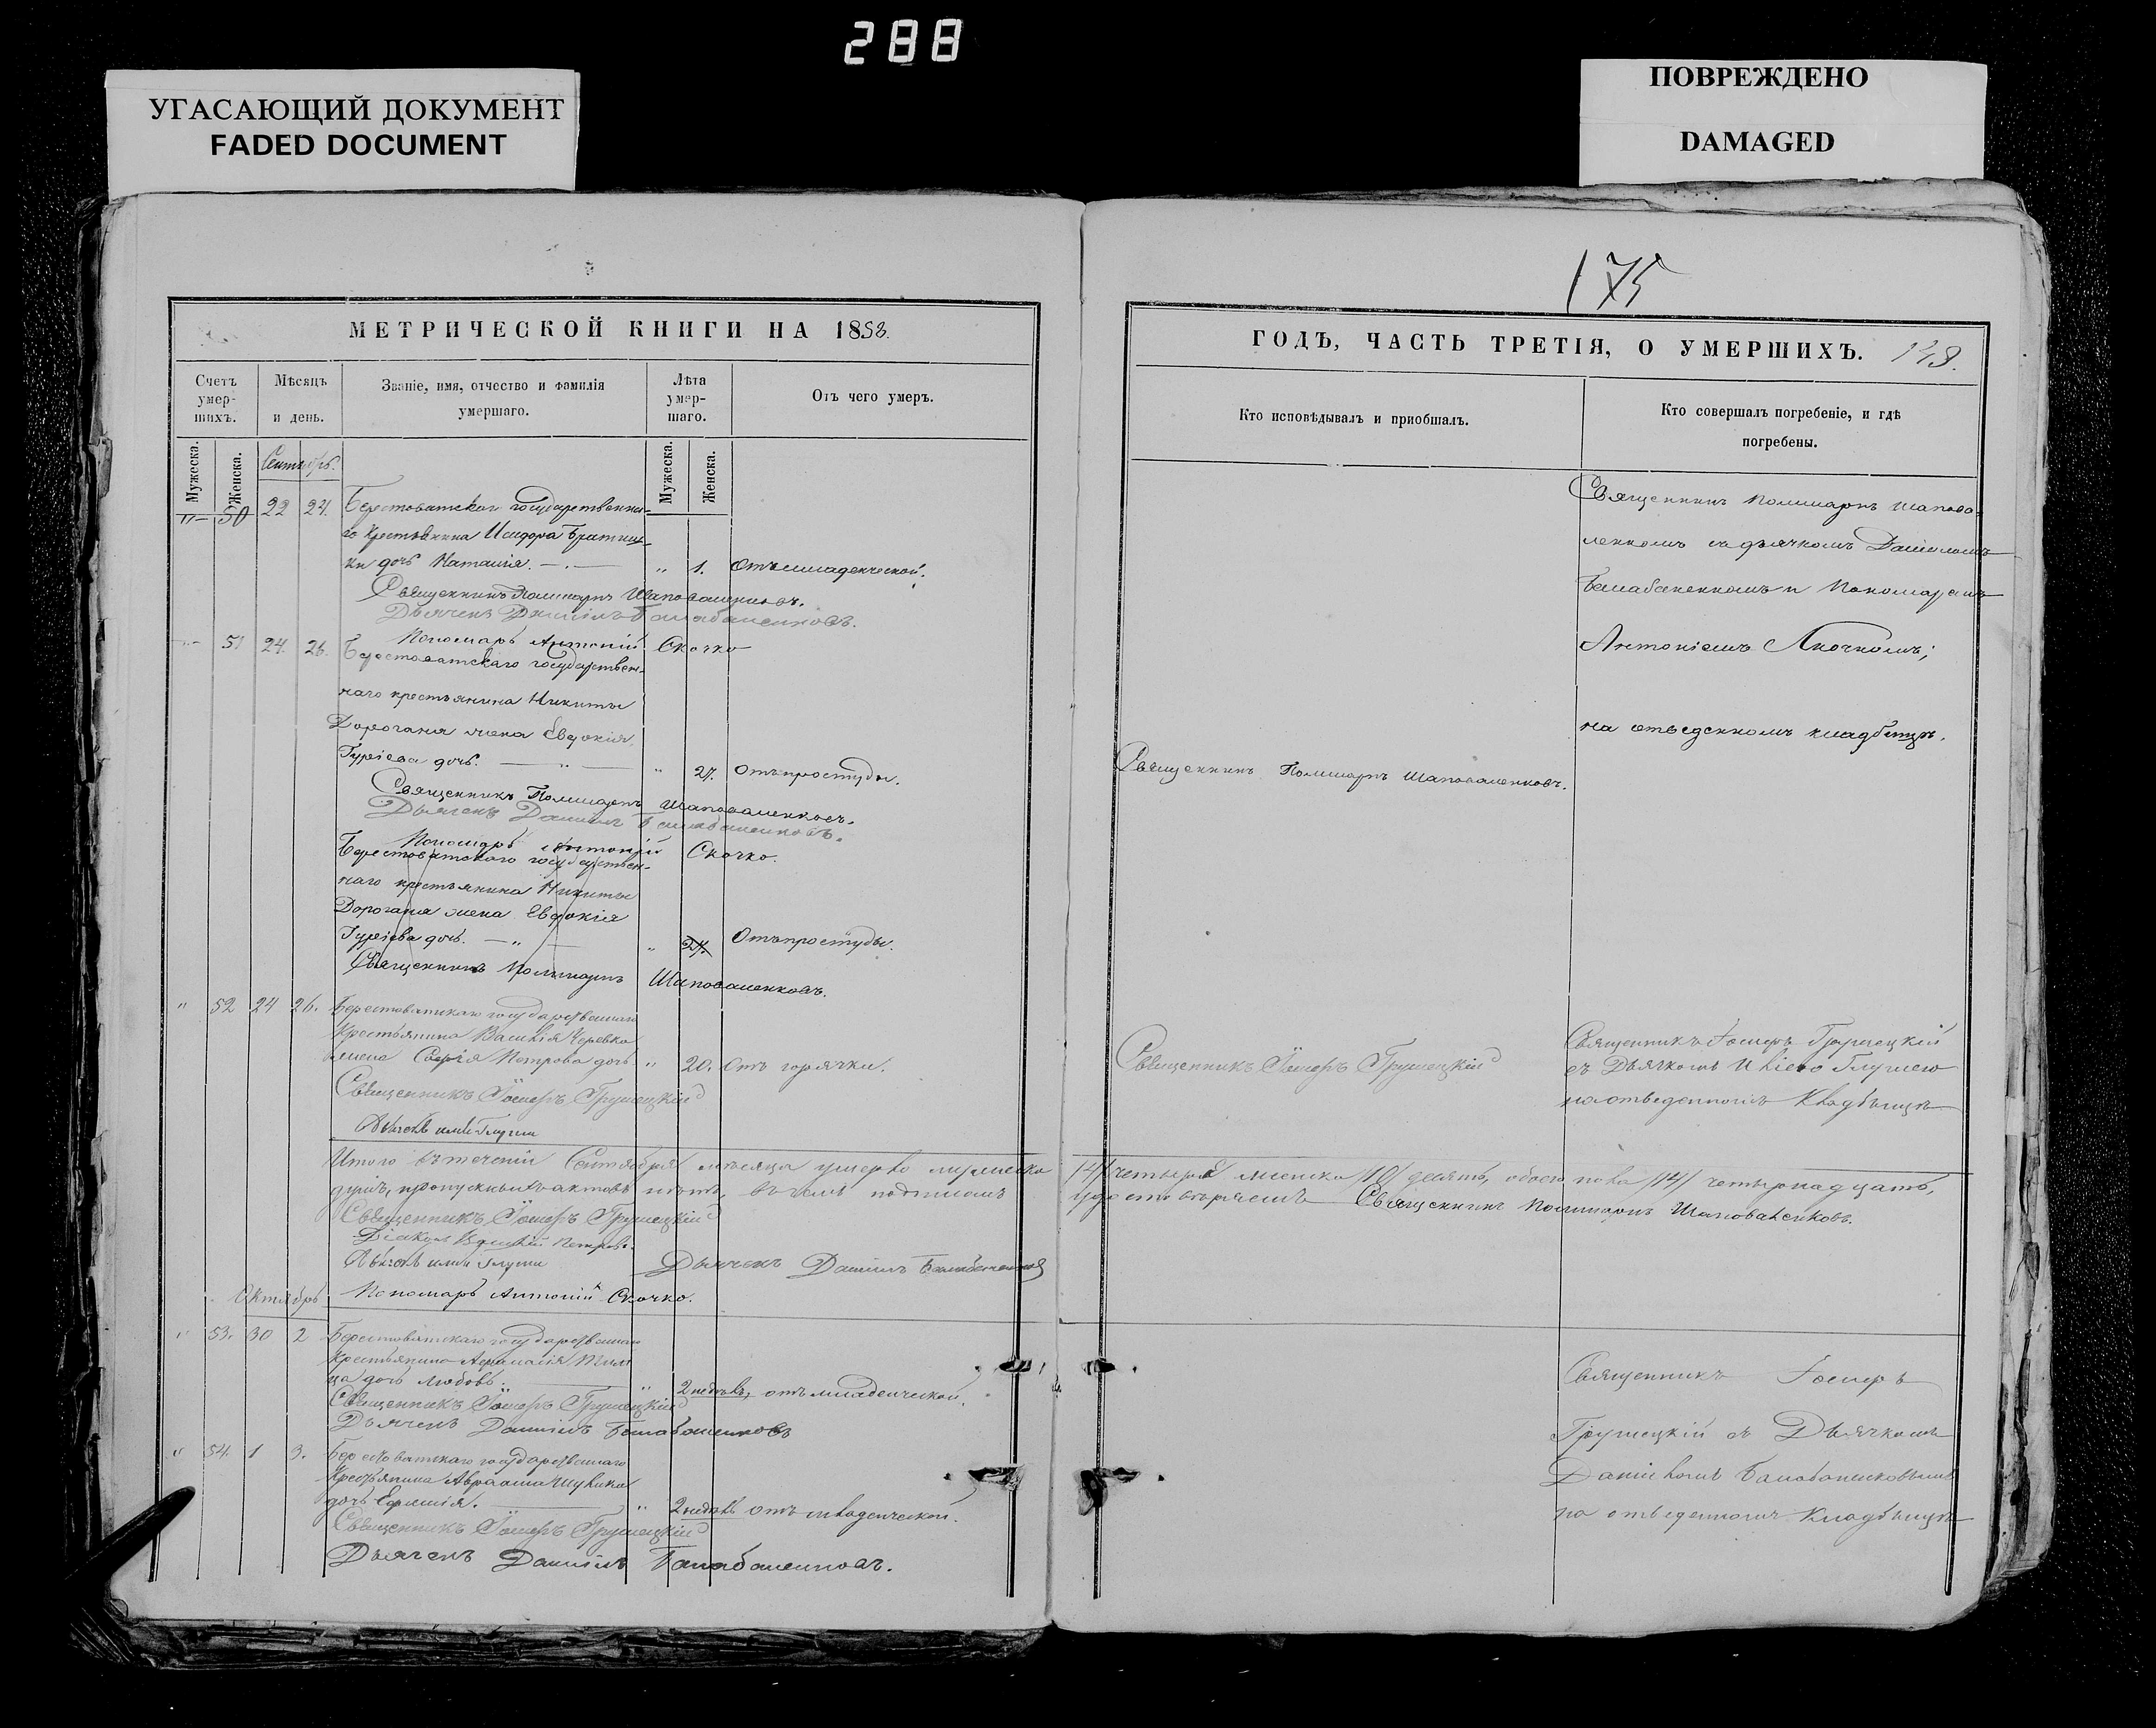 288
УГАСАЮЩИЙ ДОКУМЕНТ
FADED DOCUMENT
ПОВРЕЖДЕНО
DAMAGED
175
МЕТРИЧЕСКОЙ КНИГИ НА 1858.
Счетъ умер-шихъ.
Мѣсяцъ и день.
Званіе, имя, отчество и фамилія умершаго.
Лѣта умер-шаго.
Отъ чего умеръ.
Мужеска.
Женска.
Сентябрь.
Мужеска.
Женска.
"- 50 22 24. Берестоватскаго государственна-
го крестьянина Исидора
ки дочь Наталія. " 1. Отъ младенческой.
Священникъ Поликарпъ Шаповаленковъ.
Дьячекъ Даніилъ Балабаненковъ.
Пономарь Антоній Скочко
"- 51 24. 26. Берестоватскаго государствен-
наго крестьянина Никиты
Дорогана жена Евдокія
Гуріева дочь. " 27. Отъ простуды.
Священникъ Поликарпъ Шаповаленковъ.
Дьячекъ Даніилъ Балабаненковъ.
Пономарь Антоній Скочко.
Берестоватскаго государствен-
наго крестьянина Никиты
Дорогана жена Евдокія
Гуріева дочь. " 27. Отъ простуды.
Священникъ Поликарпъ Шаповаленковъ.
" 52 24 26. Берестоватскаго государственнаго
Крестьянина Василія Черевка
жена Софія Петрова дочь " 20. отъ горячки.
Священникъ Іосифъ Грушецкій
Дьячекъ
Итого въ теченіи Сентября мѣсяца умерло мужеска
душъ, пропускныхъ актовъ нѣтъ, въ чемъ подписомъ
Священникъ Іосифъ Грушецкій
Діаконъ Петровъ
Дьячекъ
Дьячекъ Даніилъ Балабаненковъ
Октябрь
Пономарь Антоній Скочко.
" 53. 30 2 Берестоватскаго государственнаго
Крестьянина
ца дочь Любовь. " 2 недѣль, отъ младенческой.
Священникъ Іосифъ Грушецкій
Дьячекъ Даніилъ Балабаненковъ
" 54. 1 3. Берестоватскаго государственнаго
Крестьянина Авраама
дочь Ефимія. " 2 недѣль отъ младенческой.
Священникъ Іосифъ Грушецкій
Дьячекъ Даніилъ Балабаненковъ.
ГОДЪ, ЧАСТЬ ТРЕТІЯ, О УМЕРШИХЪ.
Кто исповѣдывалъ и приобщалъ.
Кто совершалъ погребеніе, и гдѣ погребены.
Священникъ Поликарпъ Шапова-
ленкомъ съ дьячкомъ Даніиломъ
Балабаненкомъ и Пономаремъ
Антоніемъ Скочкомъ;
на отведенномъ кладбищѣ.
Священникъ Поликарпъ Шаповаленковъ.
Священникъ Іосифъ Грушецкій
Священникъ Іосифъ Грушецкій
съ Дьячкомъ
на отведенномъ Кладбищѣ
/4/ четыре женска /10/ десять, обоего пола /14/ четырнадцать,
удостовѣряемъ Священникъ Поликарпъ Шаповаленковъ.
Священникъ Іосифъ
Грушецкій съ Дьячкомъ
Даніиломъ Балабаненковымъ
на отведенномъ Кладбищѣ